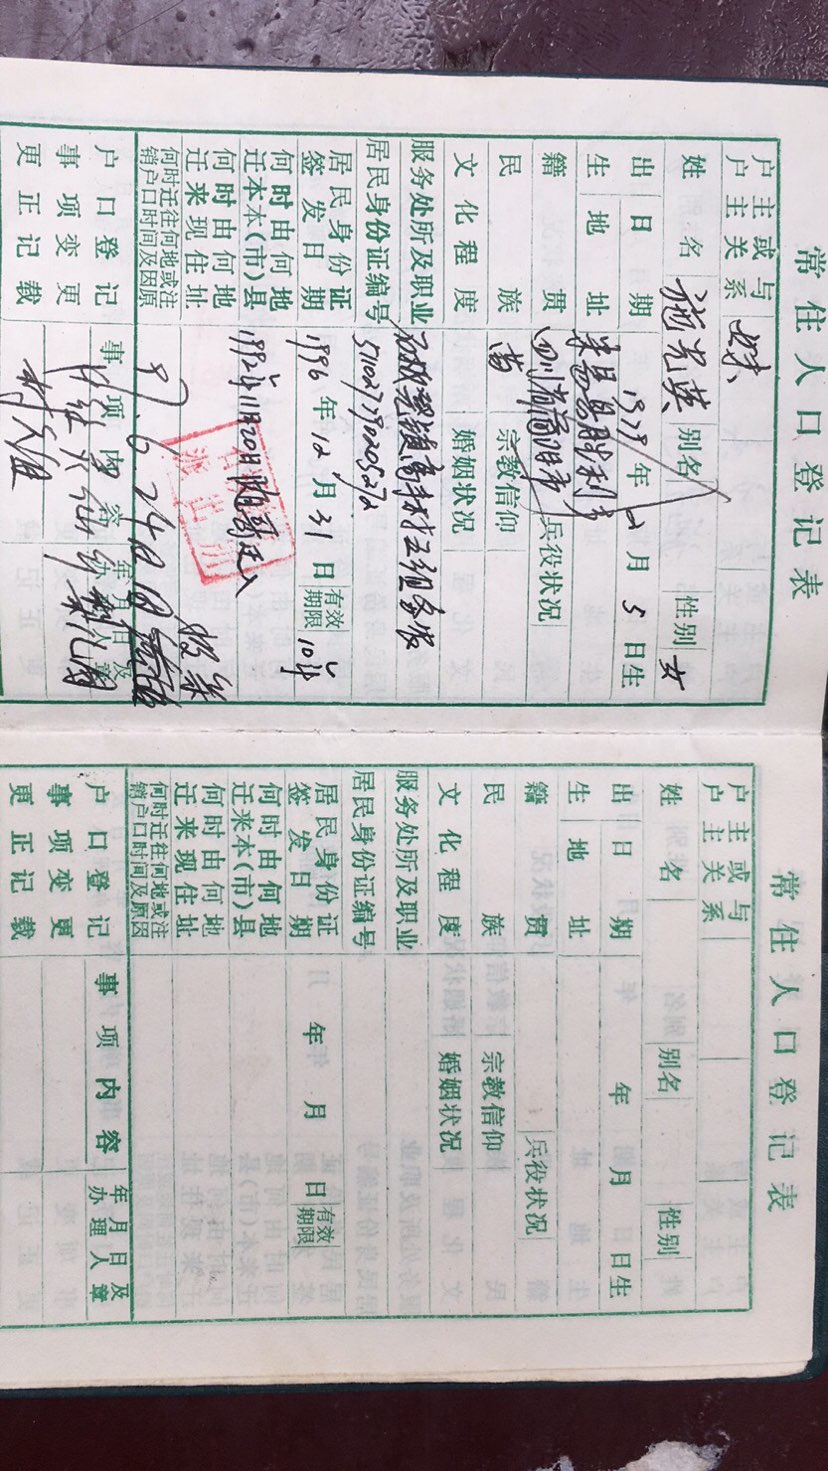 常住人口登记表
户主或与户主关系 妹
姓名 施光英 别名 性别 女
出生日期 1979年2月5日生
地址 米易县胜利乡
籍贯 四川省简阳市 兵役状况
民族 苗 宗教信仰
文化程度 婚姻状况
服务处所及职业
居民身份证编号
居民身份证签发日期 1996年12月31日 有效期限 10年
何时由何地迁来本(市)县 1992年11月20日随哥迁入
何时由何地迁来现住址
何时迁往何地或注销户口时间及原因
户口登记事项变更更正记载 事项内容 年月日及办理人章
常住人口登记表
户主或与户主关系
姓名 别名 性别
出生日期 年 月 日生
地址
籍贯 兵役状况
民族 宗教信仰
文化程度 婚姻状况
服务处所及职业
居民身份证编号
居民身份证签发日期 年 月 日 有效期限
何时由何地迁来本(市)县
何时由何地迁来现住址
何时迁往何地或注销户口时间及原因
户口登记事项变更更正记载 事项内容 年月日及办理人章